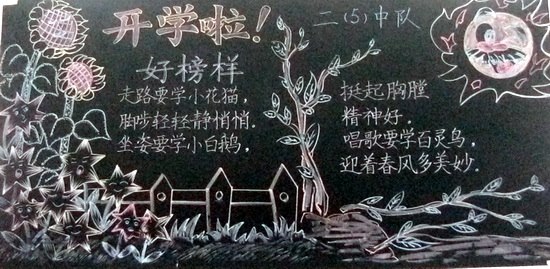 开学啦!
二(5)中队
好榜样
走路要学小花猫,
脚步轻轻静悄悄.
坐姿要学小白鹅,
挺起胸膛
精神好.
唱歌要学百灵鸟,
迎着春风多美妙.